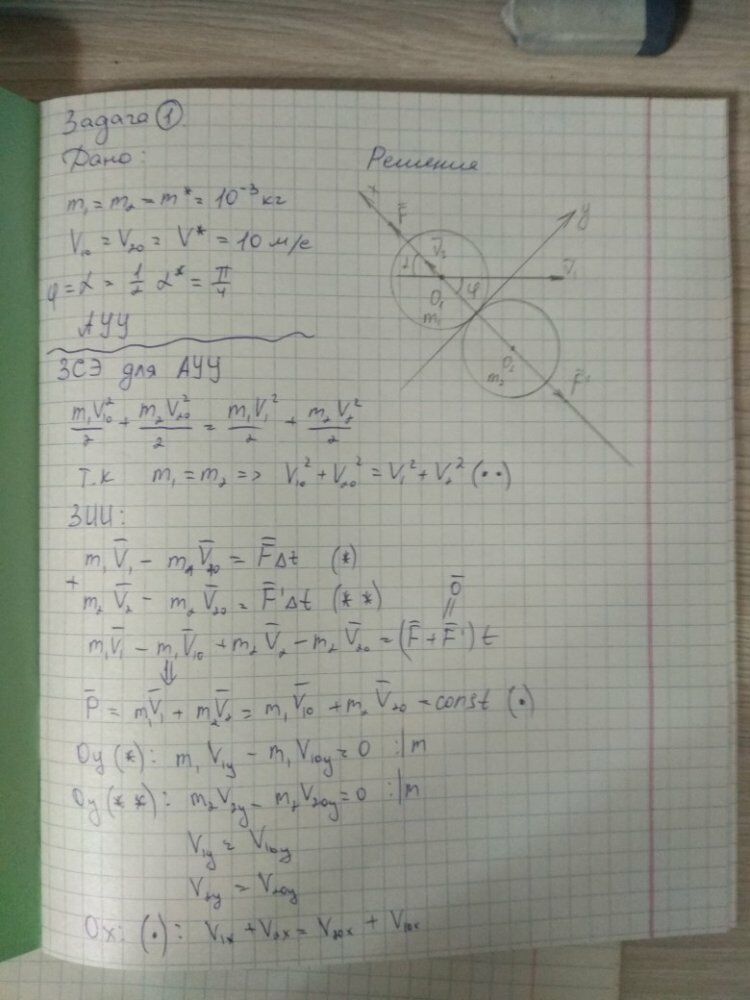 Задача ①.
Дано:
Решения
m₁ = m₂ = m* = 10⁻³ кг
V₁₀ = V₂₀ = V* = 10 м/с
φ = α = 1/2 α* = π/4
АУУ
x
y
F̄
V̄₂
V̄₁
α
φ
O₁
m₁
O₂
m₂
F̄'
ЗСЭ для АУУ
m₁V₁₀²/2 + m₂V₂₀²/2 = m₁V₁²/2 + m₂V₂²/2
т.к m₁ = m₂ => V₁₀² + V₂₀² = V₁² + V₂² (··)
ЗИИ:
m₁V̄₁ − m₁V̄₁₀ = F̄Δt (*)
+
m₂V̄₂ − m₂V̄₂₀ = F̄'Δt (**)
0̄
=
m₁V̄₁ − m₁V̄₁₀ + m₂V̄₂ − m₂V̄₂₀ = (F̄ + F̄') t
⇓
P̄ = m₁V̄₁ + m₂V̄₂ = m₁V̄₁₀ + m₂V̄₂₀ = const (·)
Oy (*): m₁V₁y − m₁V₁₀y = 0 :|m
Oy (**): m₂V₂y − m₂V₂₀y = 0 :|m
V₁y = V₁₀y
V₂y = V₂₀y
Ox: (·): V₁x + V₂x = V₂₀x + V₁₀x